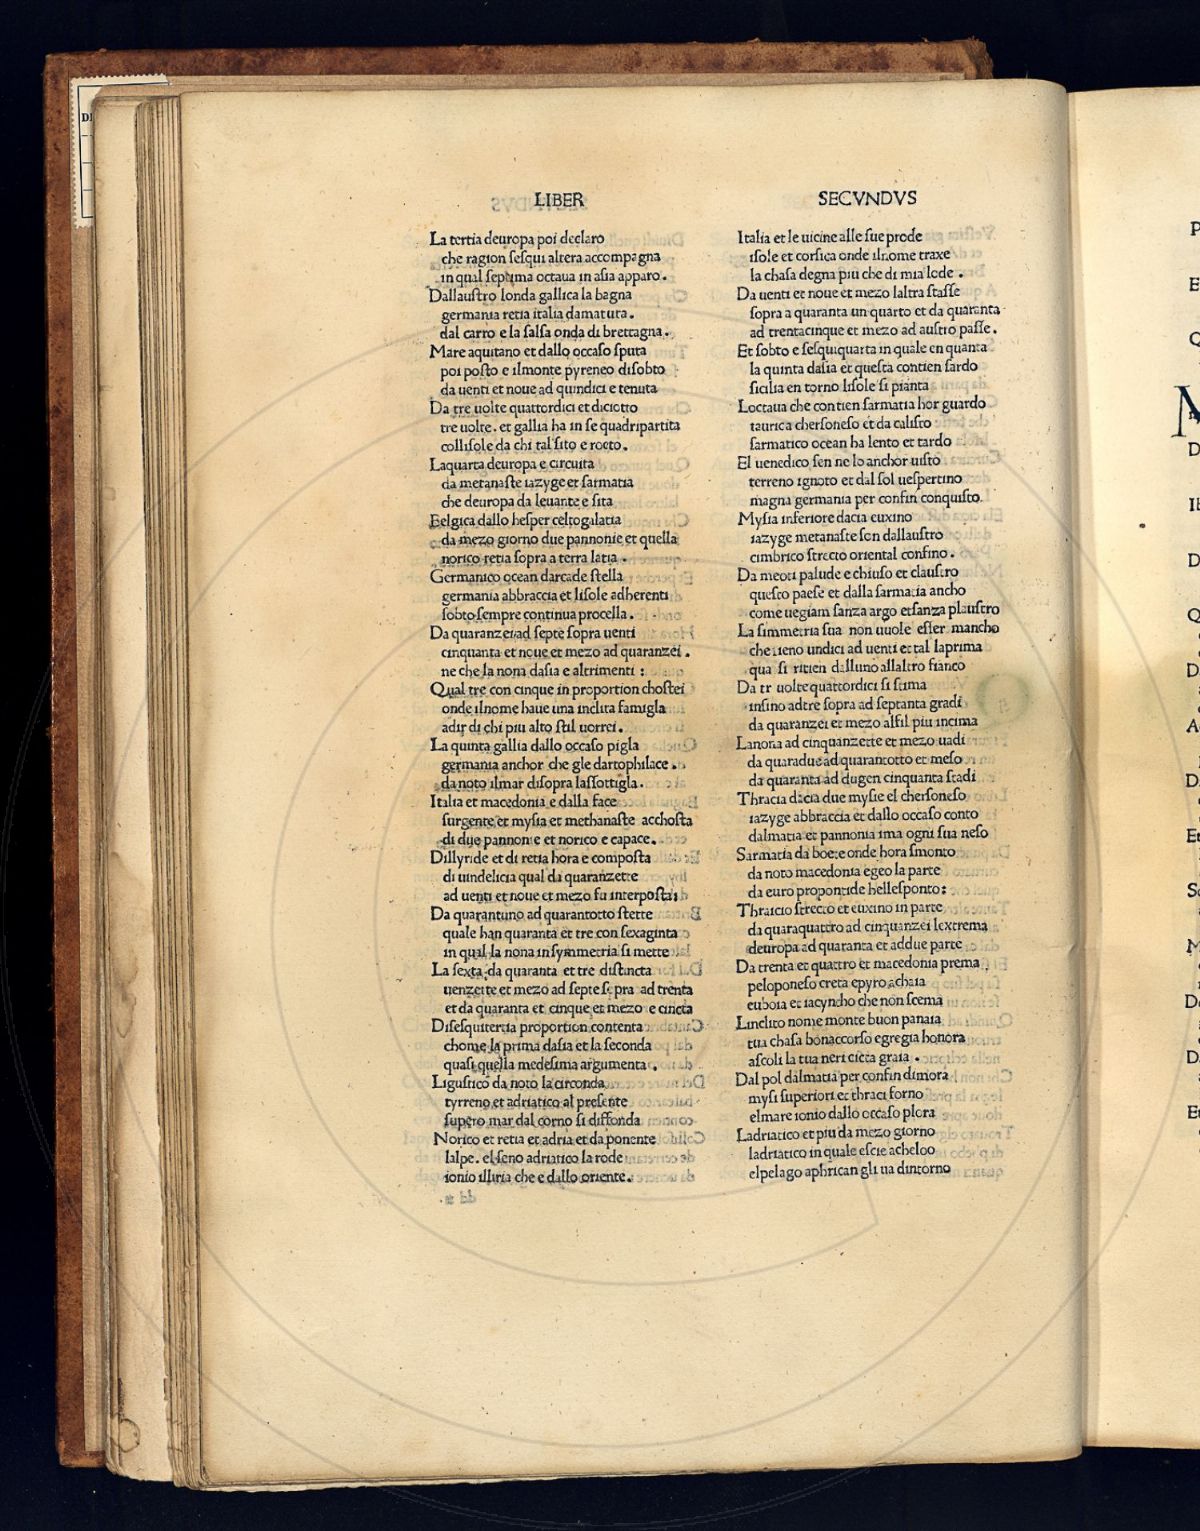 LIBER
La tertia deuropa poi declaro
che ragion sesqui altera accompagna
in qual septima octaua in asia apparo.
Dallaustro londa gallica la bagna
germania retia italia damatura.
dal carro e la salsa onda di brettagna.
Mare aquitano et dallo occaso sputa
poi posto e ilmonte pyreneo disobto
da uenti et noue ad quindici e tenuta
Da tre uolte quattordici et diciotto
tre uolte. et gallia ha in se quadripartita
collisole da chi tal sito e rocto.
Laquarta deuropa e circuita
da metanaste iazyge et sarmatia
che deuropa da leuante e sita
Belgica dallo hesper celtogalatia
da mezo giorno due pannonie et quella
norico retia sopra a terra latia.
Germanico ocean darcade stella
germania abbraccia et lisole adherenti
sobto sempre continua procella.
Da quaranzei ad septe sopra uenti
cinquanta et noue et mezo ad quaranzei.
ne che la nona dasia e altrimenti :
Qual tre con cinque in proportion chostei
onde ilnome haue una inclita famigla
adir di chi piu alto stil uorrei.
La quinta gallia dallo occaso pigla
germania anchor che gle dartophilace.
da noto ilmar disopra lassottigla.
Italia et macedonia e dalla face
surgente et mysia et methanaste acchosta
di due pannonie et norico e capace.
Dillyride et di retia hora e composta
di uindelicia qual da quaranzette
ad uenti et noue et mezo fu interposta;
Da quarantuno ad quarantotto stette
quale han quaranta et tre con sexaginta
in qual la nona in symmetria si mette
La sexta da quaranta et tre distincta
uenzette et mezo ad septe sopra ad trenta
et da quaranta et cinque et mezo e cincta
Disesquitertia proportion contenta
chome la prima dasia et la seconda
quasi quella medesima argumenta.
Ligustico da noto la circonda
tyrreno et adriatico al presente
supero mar dal corno si diffonda
Norico et retia et adria et da ponente
lalpe. el seno adriatico la rode
ionio illiria che e dallo oriente.
SECVNDVS
Italia et le uicine alle sue prode
isole et corsica onde ilnome traxe
la chasa degna piu che di mia lode.
Da uenti et noue et mezo laltra stasse
sopra a quaranta un quarto et da quaranta
ad trentacinque et mezo ad austro passe.
Et sobto e sesquiquarta in quale en quanta
la quinta dasia et questa contien sardo
sicilia en torno lisole si pianta
Loctaua che contien sarmatia hor guardo
taurica chersoneso et da calisto
sarmatico ocean ha lento et tardo
El uenedico sen ne lo anchor uisto
terreno ignoto et dal sol uespertino
magna germania per confin conquisto.
Mysia inferiore dacia euxino
iazyge metanaste son dallaustro
cimbrico strecto oriental confino.
Da meoti palude e chiuso et claustro
questo paese et dalla sarmatia ancho
come uegiam sanza argo etsanza plaustro
La simmetria sua non uuole esser mancho
che tieno undici ad uenti et tal laprima
qua si ritien dalluno allaltro fianco
Da tr uolte quattordici si stima
insino adtre sopra ad septanta gradi
da quaranzei et mezo alsil piu incima
Lanona ad cinquanzette et mezo uadi
da quaradue ad quarantotto et meso
da quaranta ad dugen cinquanta stadi
Thracia dacia due mysie el chersoneso
iazyge abbraccia et dallo occaso conto
dalmatia et pannonia ima ogni sua neso
Sarmatia da boete onde hora smonto
da noto macedonia egeo la parte
da euro propontide hellesponto:
Thraicio strecto et euxino in parte
da quaraquattro ad cinquanzei lextrema
deuropa ad quaranta et addue parte
Da trenta et quattro et macedonia prema
peloponeso creta epyro achaia
euboia et iacyncho che non scema
Linclito nome monte buon panaia
tua chasa bonaccorso egregia honora
ascoli la tua neri cicca graia.
Dal pol dalmatia per confin dimora
mysi superiori et thraci forno
elmare ionio dallo occaso plora
Ladriatico et piu da mezo giorno
ladriatico in quale escie acheloo
elpelago aphrican gli ua dintorno